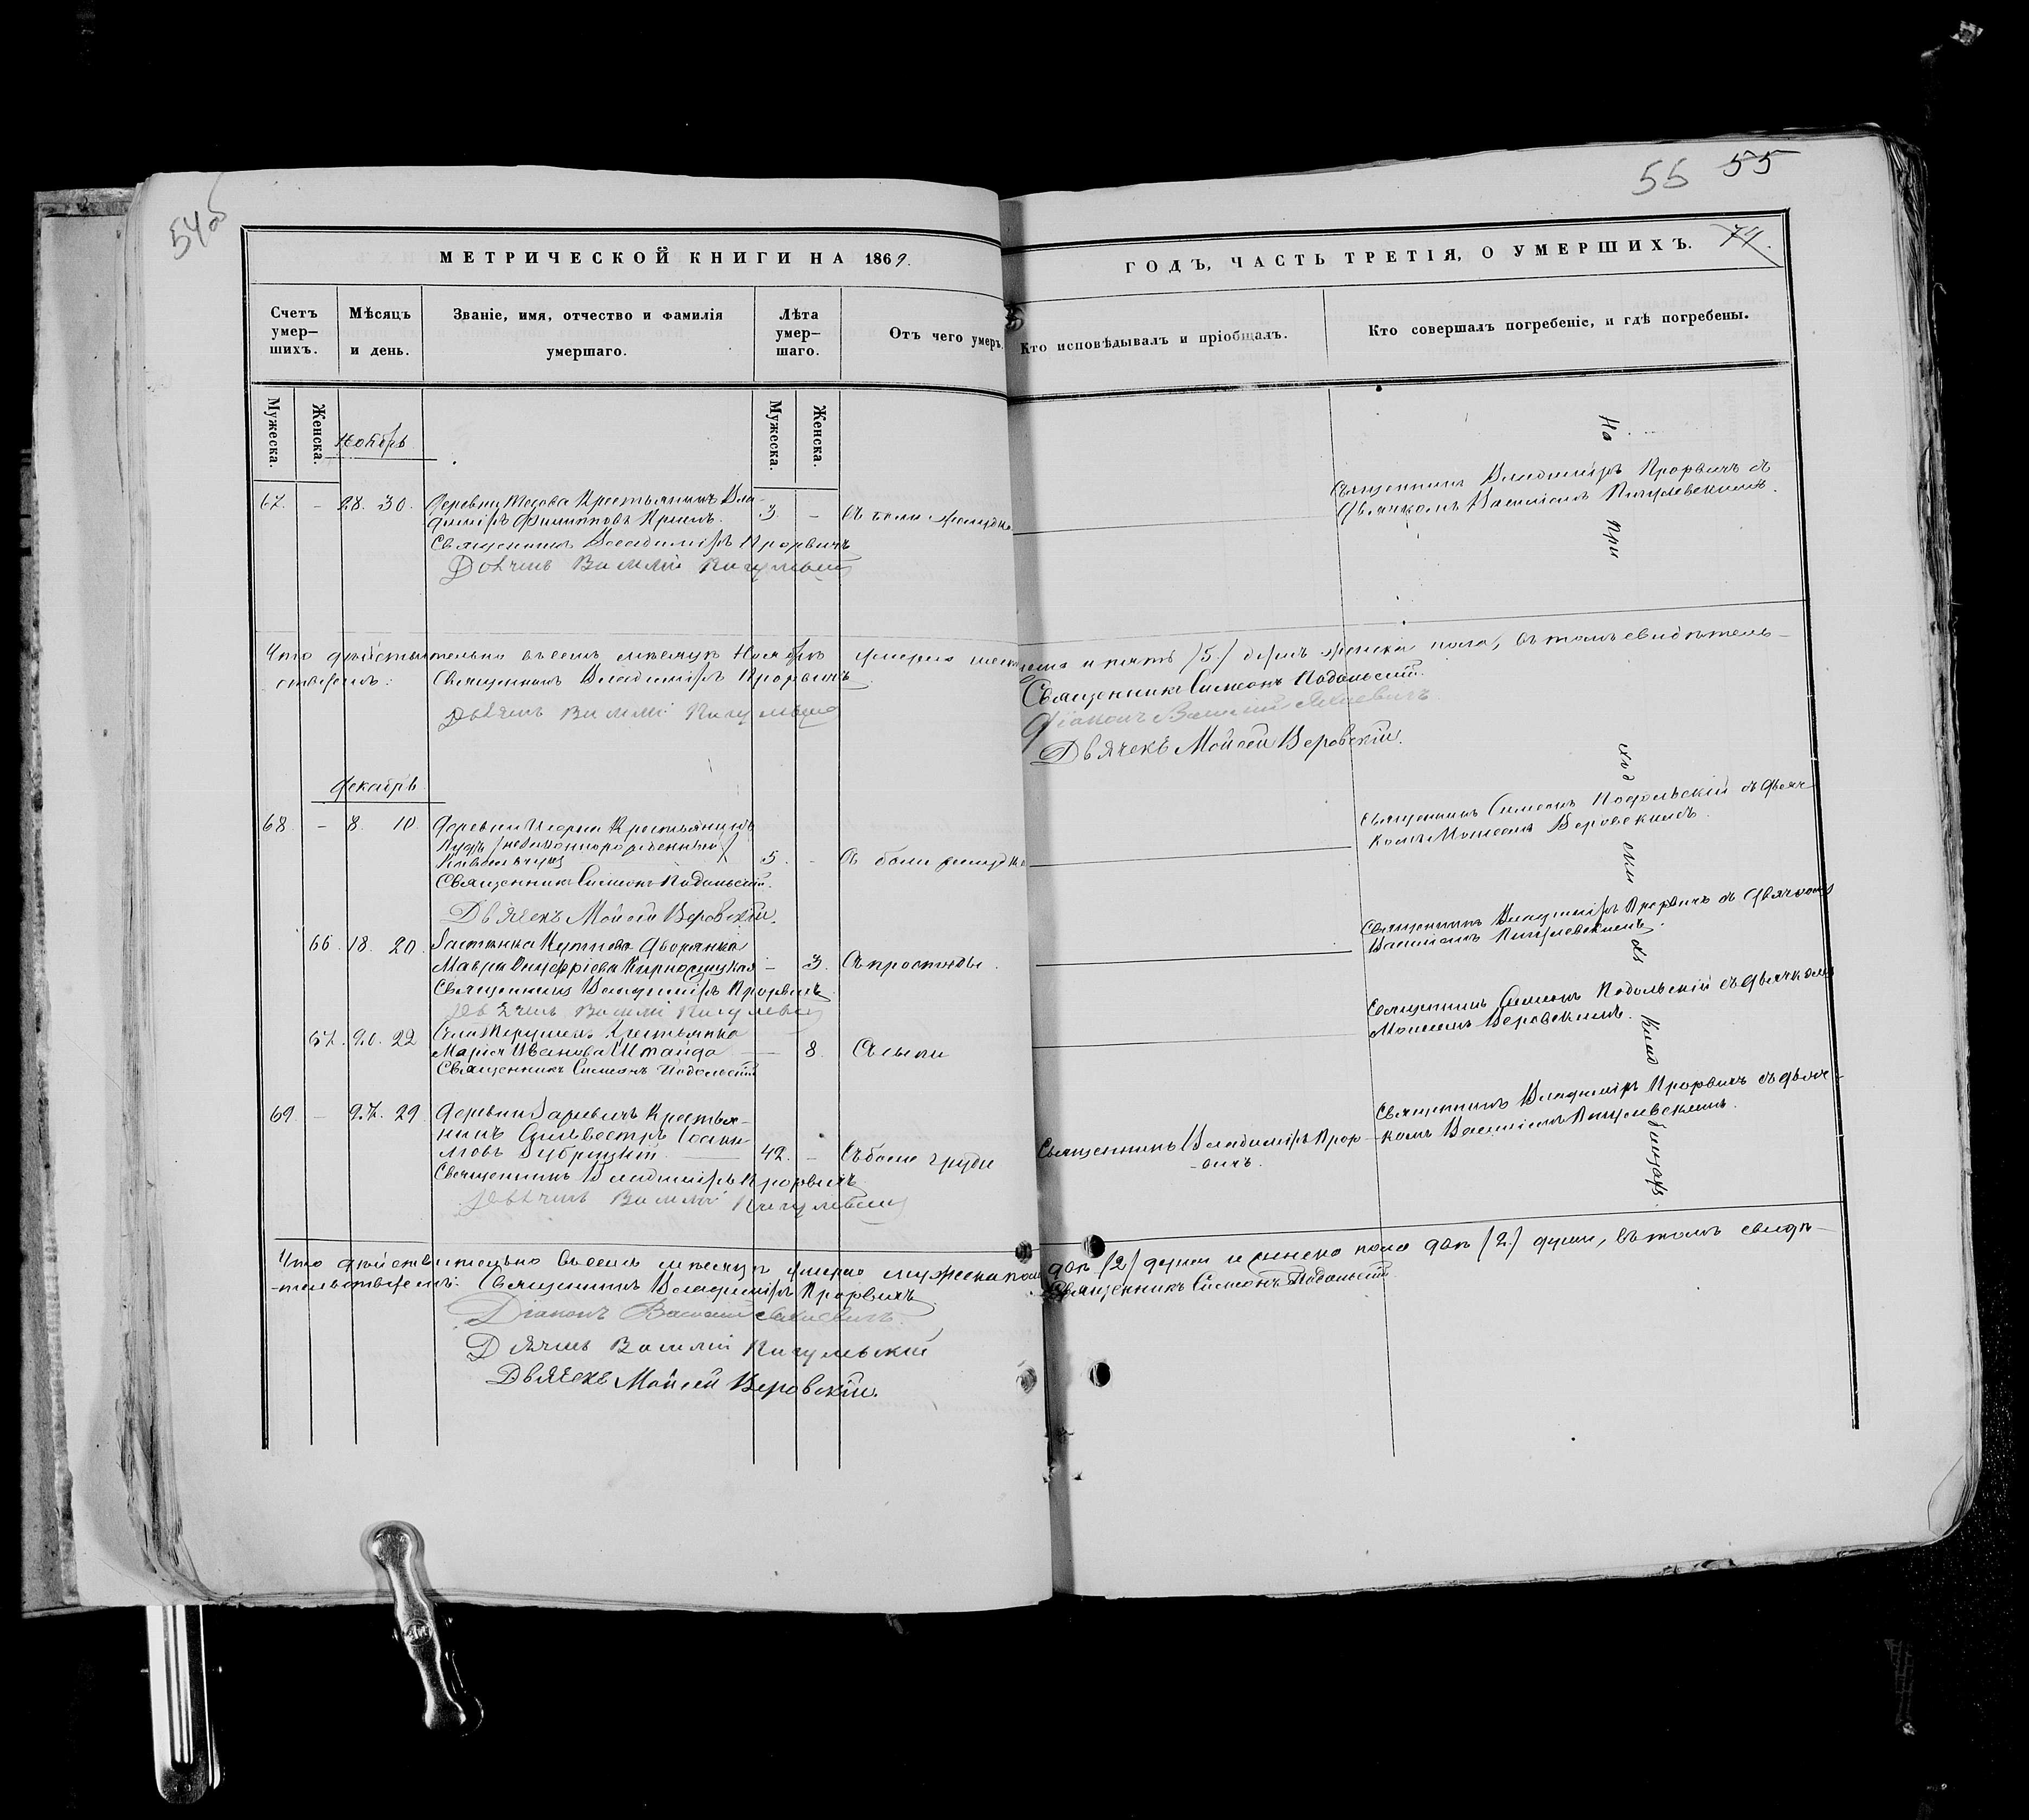 54об
55 55
74.
МЕТРИЧЕСКОЙ КНИГИ НА 1869.
ГОДЪ, ЧАСТЬ ТРЕТІЯ, О УМЕРШИХЪ.
Счетъ умер-
шихъ.
Мѣсяцъ
и день.
Званіе, имя, отчество и фамилія
умершаго.
Лѣта
умер-
шаго.
Отъ чего умеръ.
Кто исповѣдывалъ и пріобщалъ.
Кто совершалъ погребеніе, и гдѣ погребены.
Мужеска.
Женска.
Мужеска.
Женска.
Ноябрь
67. - 28. 30. Деревни Крестьянинъ Вла-
диміръ Филиповъ 3. - Съ боли
Священникъ Владиміръ Прорвичъ
Дьячекъ Василій Пигулевскій
Священникъ Владиміръ Прорвичъ съ
Дьячкомъ Василіемъ Пигулевскимъ.
Что дѣйствительно въ семъ мѣсяцѣ Ноябрѣ умерло и пять /5/ женска пола, въ томъ свидѣтель-
ствуемъ: Священникъ Владиміръ Прорвичъ
Дьячекъ Василій Пигулевскій
Священникъ Симеонъ Подольскій.
Діаконъ Василій
Дьячекъ Мойсей Веровскій.
Декабрь
68. - 8. 10. Деревни Крестьянинъ
/незаконнорожденный/
5. - Съ боли
Священникъ Симеонъ Подольскій.
Дьячекъ Мойсей Веровскій.
Священникъ Симеонъ Подольскій съ дьяч-
комъ Моисеемъ Веровскимъ.
66. 18. 20. Застѣнка Дворянка
Мавра Онуфріева - 3. Съ простуды.
Священникъ Владиміръ Прорвичъ
Дьячекъ Василій Пигулевскій
Священникъ Владиміръ Прорвичъ съ Дьячкомъ
Василіемъ Пигулевскимъ.
67. 20. 22 Села Крестьянка
Марія Иванова - 8.
Священникъ Симеонъ Подольскій
Священникъ Симеонъ Подольскій съ дьячкомъ
Моисеемъ Веровскимъ.
69. - 27. 29. Деревни Крестья-
нинъ Сильвестръ
42. - Съ боли груди
Священникъ Владиміръ Прорвичъ
Дьячекъ Василій Пигулевскій
Священникъ Владиміръ Прор-
вичъ.
Священникъ Владиміръ Прорвичъ съ дьяч-
комъ Василіемъ Пигулевскимъ.
На при ход ски хъ клад бищахъ
Что дѣйствительно въ семъ мѣсяцѣ умерло мужеска пола двѣ /2/ души и женска пола двѣ /2/ души, въ томъ свидѣ-
тельствуемъ: Священникъ Владиміръ Прорвичъ
Священникъ Симеонъ Подольскій
Діаконъ Василій
Дьячекъ Василій Пигулевскій
Дьячекъ Мойсей Веровскій.